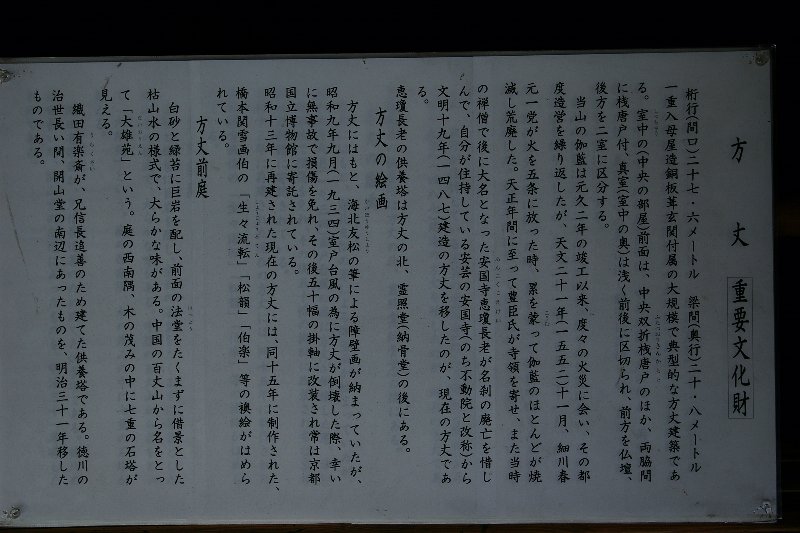 方丈 重要文化財
桁行(間口)二十七・六メートル 梁間(奥行)二十・八メートル
一重入母屋造銅板葺玄関付属の大規模で典型的な方丈建築であ
る。室中の(中央の部屋)前面は、中央双折桟唐戸のほか、両脇間
に桟唐戸付、真室(室中の奥)は浅く前後に区切られ、前方を仏壇、
後方を二室に区分する。
当山の伽藍は元久二年の竣工以来、度々の火災に会い、その都
度造営を繰り返したが、天文二十一年(一五五二)十一月、細川春
元一党が火を五条に放った時、累を蒙って伽藍のほとんどが焼
滅し荒廃した。天正年間に至って豊臣氏が寺領を寄せ、また当時
の禅僧で後に大名となった安国寺恵瓊長老が名刹の廃亡を惜し
んで、自分が住持している安芸の安国寺(のち不動院と改称)から
文明十九年(一四八七)建造の方丈を移したのが、現在の方丈であ
る。
恵瓊長老の供養塔は方丈の北、霊照堂(納骨堂)の後にある。
方丈の絵画
方丈にはもと、海北友松の筆による障壁画が納まっていたが、
昭和九年九月(一九三四)室戸台風の為に方丈が倒壊した際、幸い
に無事故で損傷を免れ、その後五十幅の掛軸に改装され常は京都
国立博物館に寄託されている。
昭和十三年に再建された現在の方丈には、同十五年に制作された、
橋本関雪画伯の「生々流転」「松韻」「伯楽」等の襖絵がはめら
れている。
方丈前庭
白砂と緑苔に巨岩を配し、前面の法堂をたくまずに借景とした
枯山水の様式で、大らかな味がある。中国の百丈山から名をとっ
て「大雄苑」という。庭の西南隅、木の茂みの中に七重の石塔が
見える。
織田有楽斎が、兄信長追善のため建てた供養塔である。徳川の
治世長い間、開山堂の南辺にあったものを、明治三十一年移した
ものである。